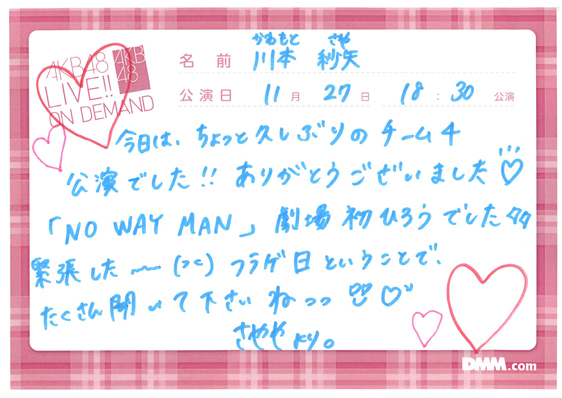 AKB48
LIVE!!
ON DEMAND
AKB
48
かわもと さや
名前 川本 紗矢
公演日 11月27日 18:30 公演
今日は、ちょっと久しぶりのチーム4
公演でした!! ありがとうございました♡
「NO WAY MAN」劇場初ひろうでした
緊張した〜 フラゲ日ということで、
たくさん聞いて下さいねっっ ♡
さややより。
DMM.com